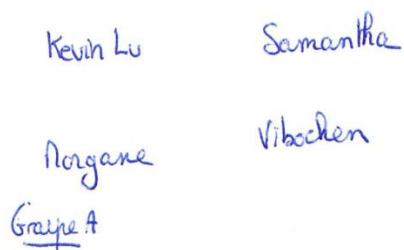 Kevin Lu Samantha
Morgane Vibochen
Groupe A